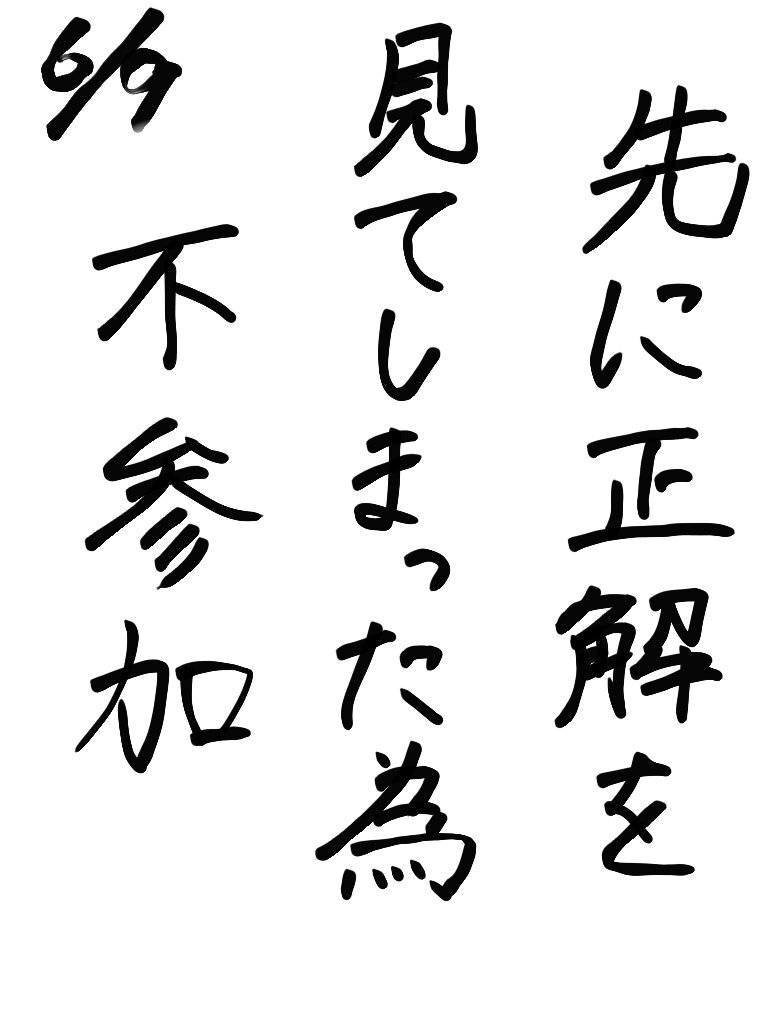 先に正解を
見てしまった為
6/9 不参加